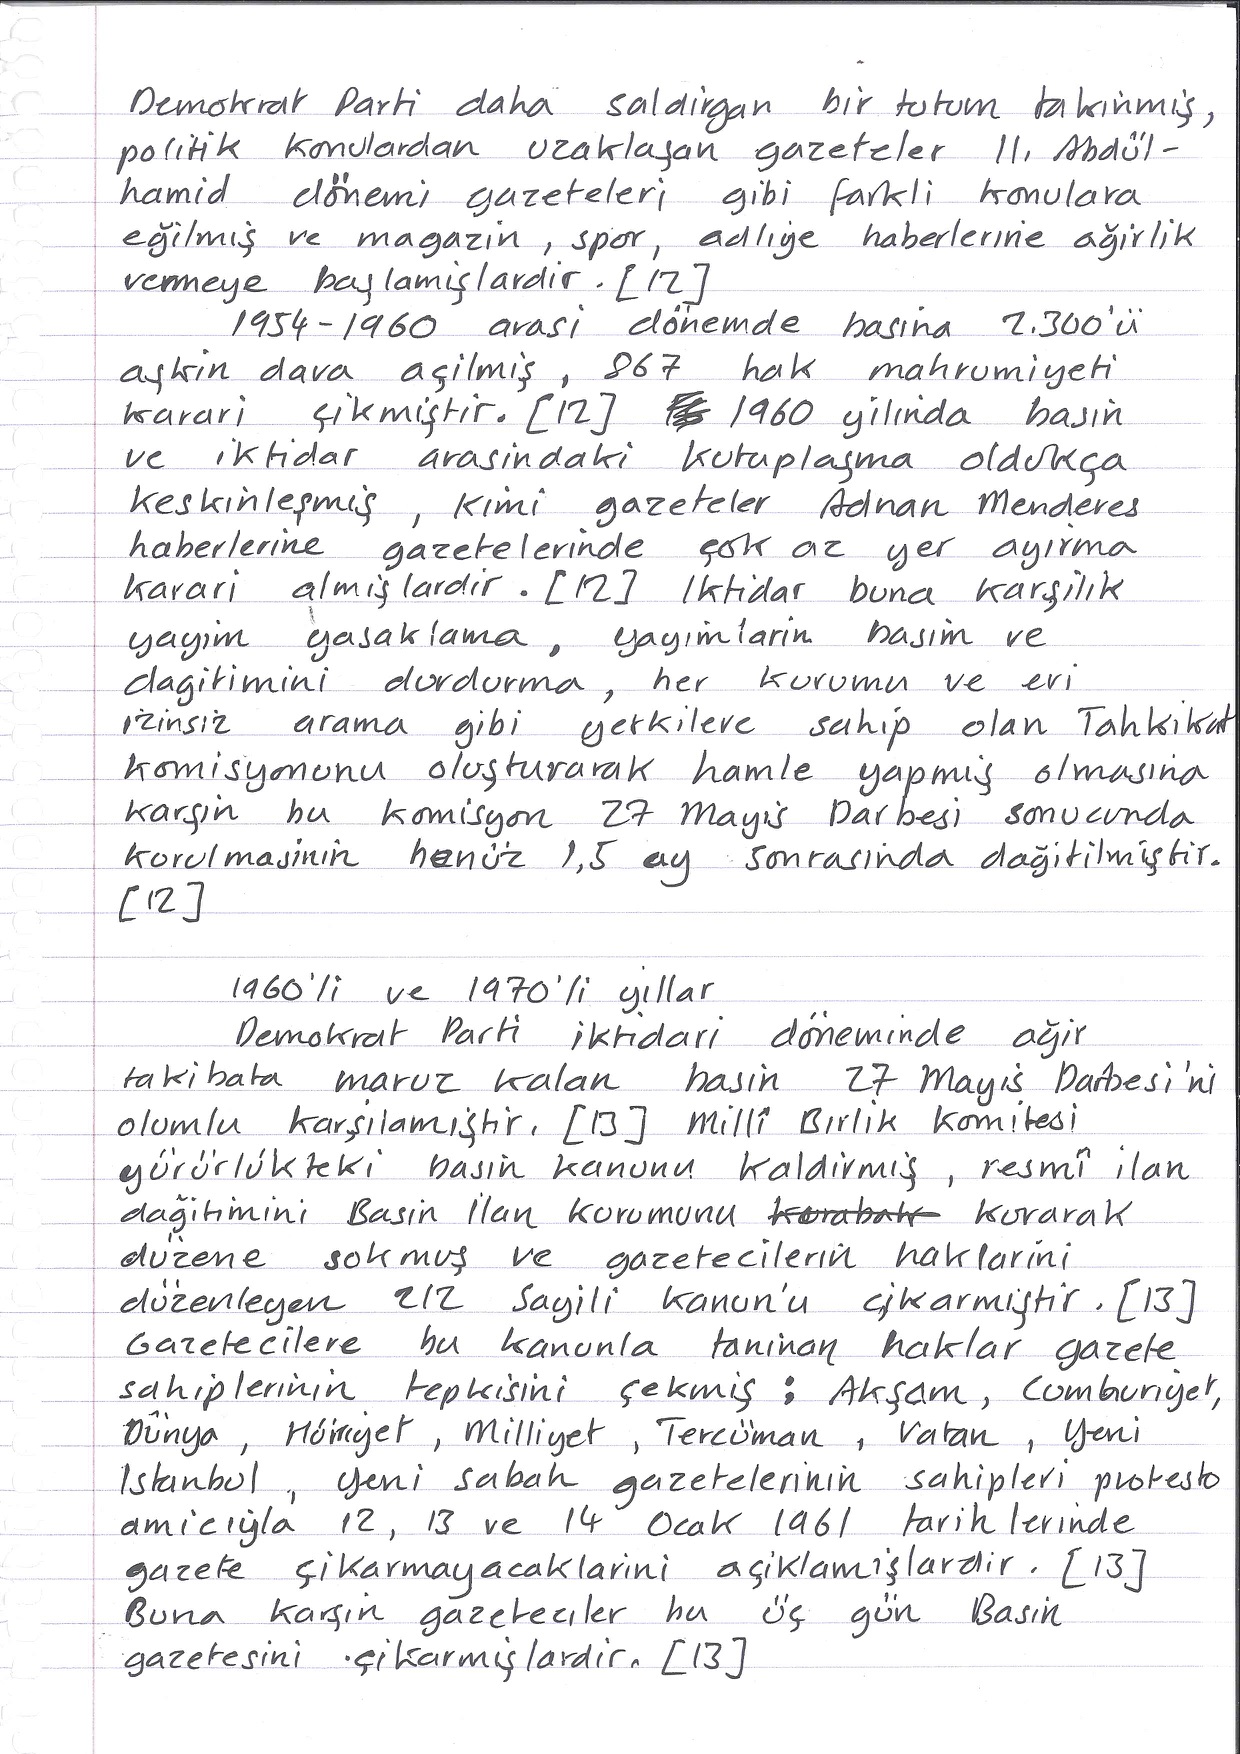 Demokrat Parti daha saldirgan bir tutum takinmiş,
politik konulardan uzaklaşan gazeteler II. Abdül-
hamid dönemi gazeteleri gibi farkli konulara
eğilmiş ve magazin, spor, adliye haberlerine ağirlik
vermeye başlamişlardir. [12]
1954-1960 arasi dönemde basina 2.300'ü
aşkin dava açilmiş, 867 hak mahrumiyeti
karari çikmiştir. [12] 1960 yilinda basin
ve iktidar arasindaki kutuplaşma oldukça
keskinleşmiş, kimi gazeteler Adnan Menderes
haberlerine gazetelerinde çok az yer ayirma
karari almişlardir. [12] Iktidar buna karşilik
yayim yasaklama, yayimlarin basim ve
dagitimini durdurma, her kurumu ve evi
izinsiz arama gibi yetkilere sahip olan Tahkikat
komisyonunu oluşturarak hamle yapmiş olmasina
karşin bu komisyon 27 Mayis Darbesi sonucunda
kurulmasinin henüz 1,5 ay sonrasinda dağitilmiştir.
[12]
1960'li ve 1970'li yillar
Demokrat Parti iktidari döneminde ağir
takibata maruz kalan basin 27 Mayis Darbesi'ni
olumlu karşilamiştir. [13] Millî Birlik Komitesi
yürürlükteki basin kanunu kaldirmiş, resmî ilan
dağitimini Basin Ilan Kurumunu kurarak
düzene sokmuş ve gazetecilerin haklarini
düzenleyen 212 Sayili Kanun'u çikarmiştir. [13]
Gazetecilere bu kanunla taninan haklar gazete
sahiplerinin tepkisini çekmiş; Akşam, Cumhuriyet,
Dünya, Hürriyet, Milliyet, Tercüman, Vatan, Yeni
Istanbul, Yeni Sabah gazetelerinin sahipleri protesto
amiciyla 12, 13 ve 14 Ocak 1961 tarihlerinde
gazete çikarmayacaklarini açiklamişlardir. [13]
Buna karşin gazeteciler bu üç gün Basin
gazetesini çikarmişlardir. [13]